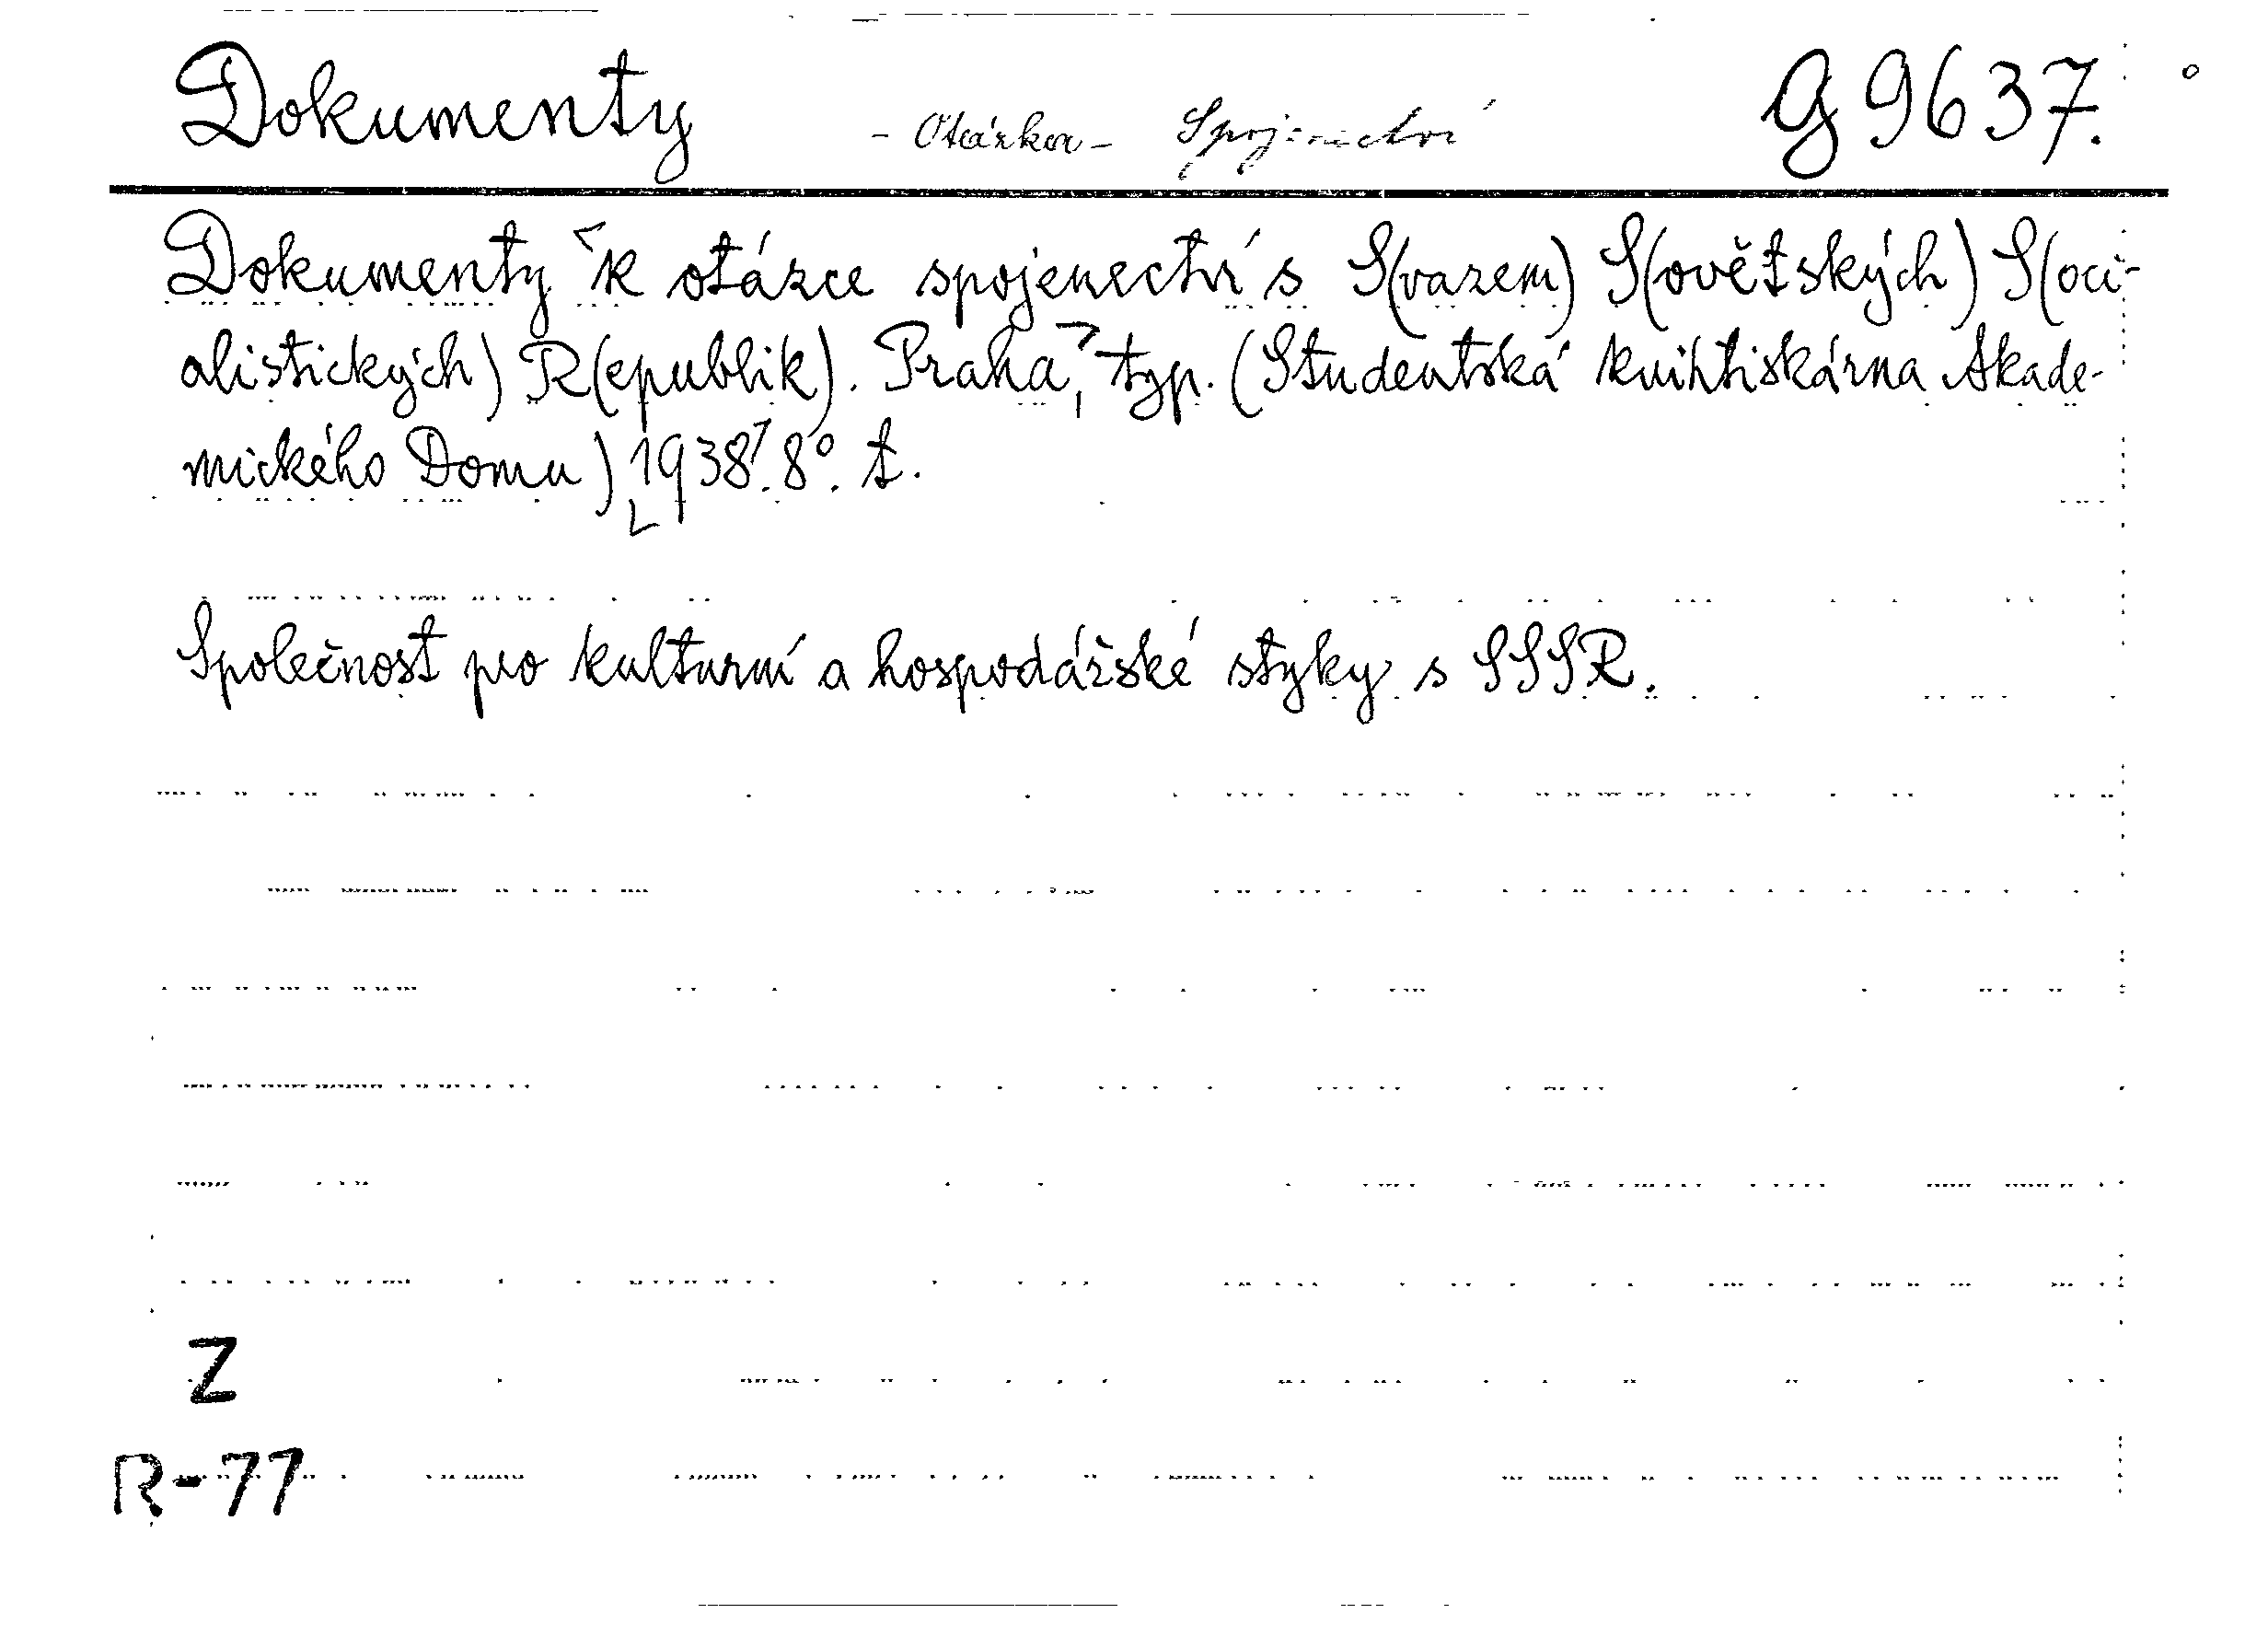 Dokumenty - Otázka - Spojenectví G 9637.
Dokumenty k otázce spojenectví s S(vazem) S(ovětských) S(oci-
alistických) R(epublik). Praha, typ. (Studentská knihtiskárna Akade-
mického Domu) 1938. 8°. t.
Společnost pro kulturní a hospodářské styky s SSSR.
Z
R-77